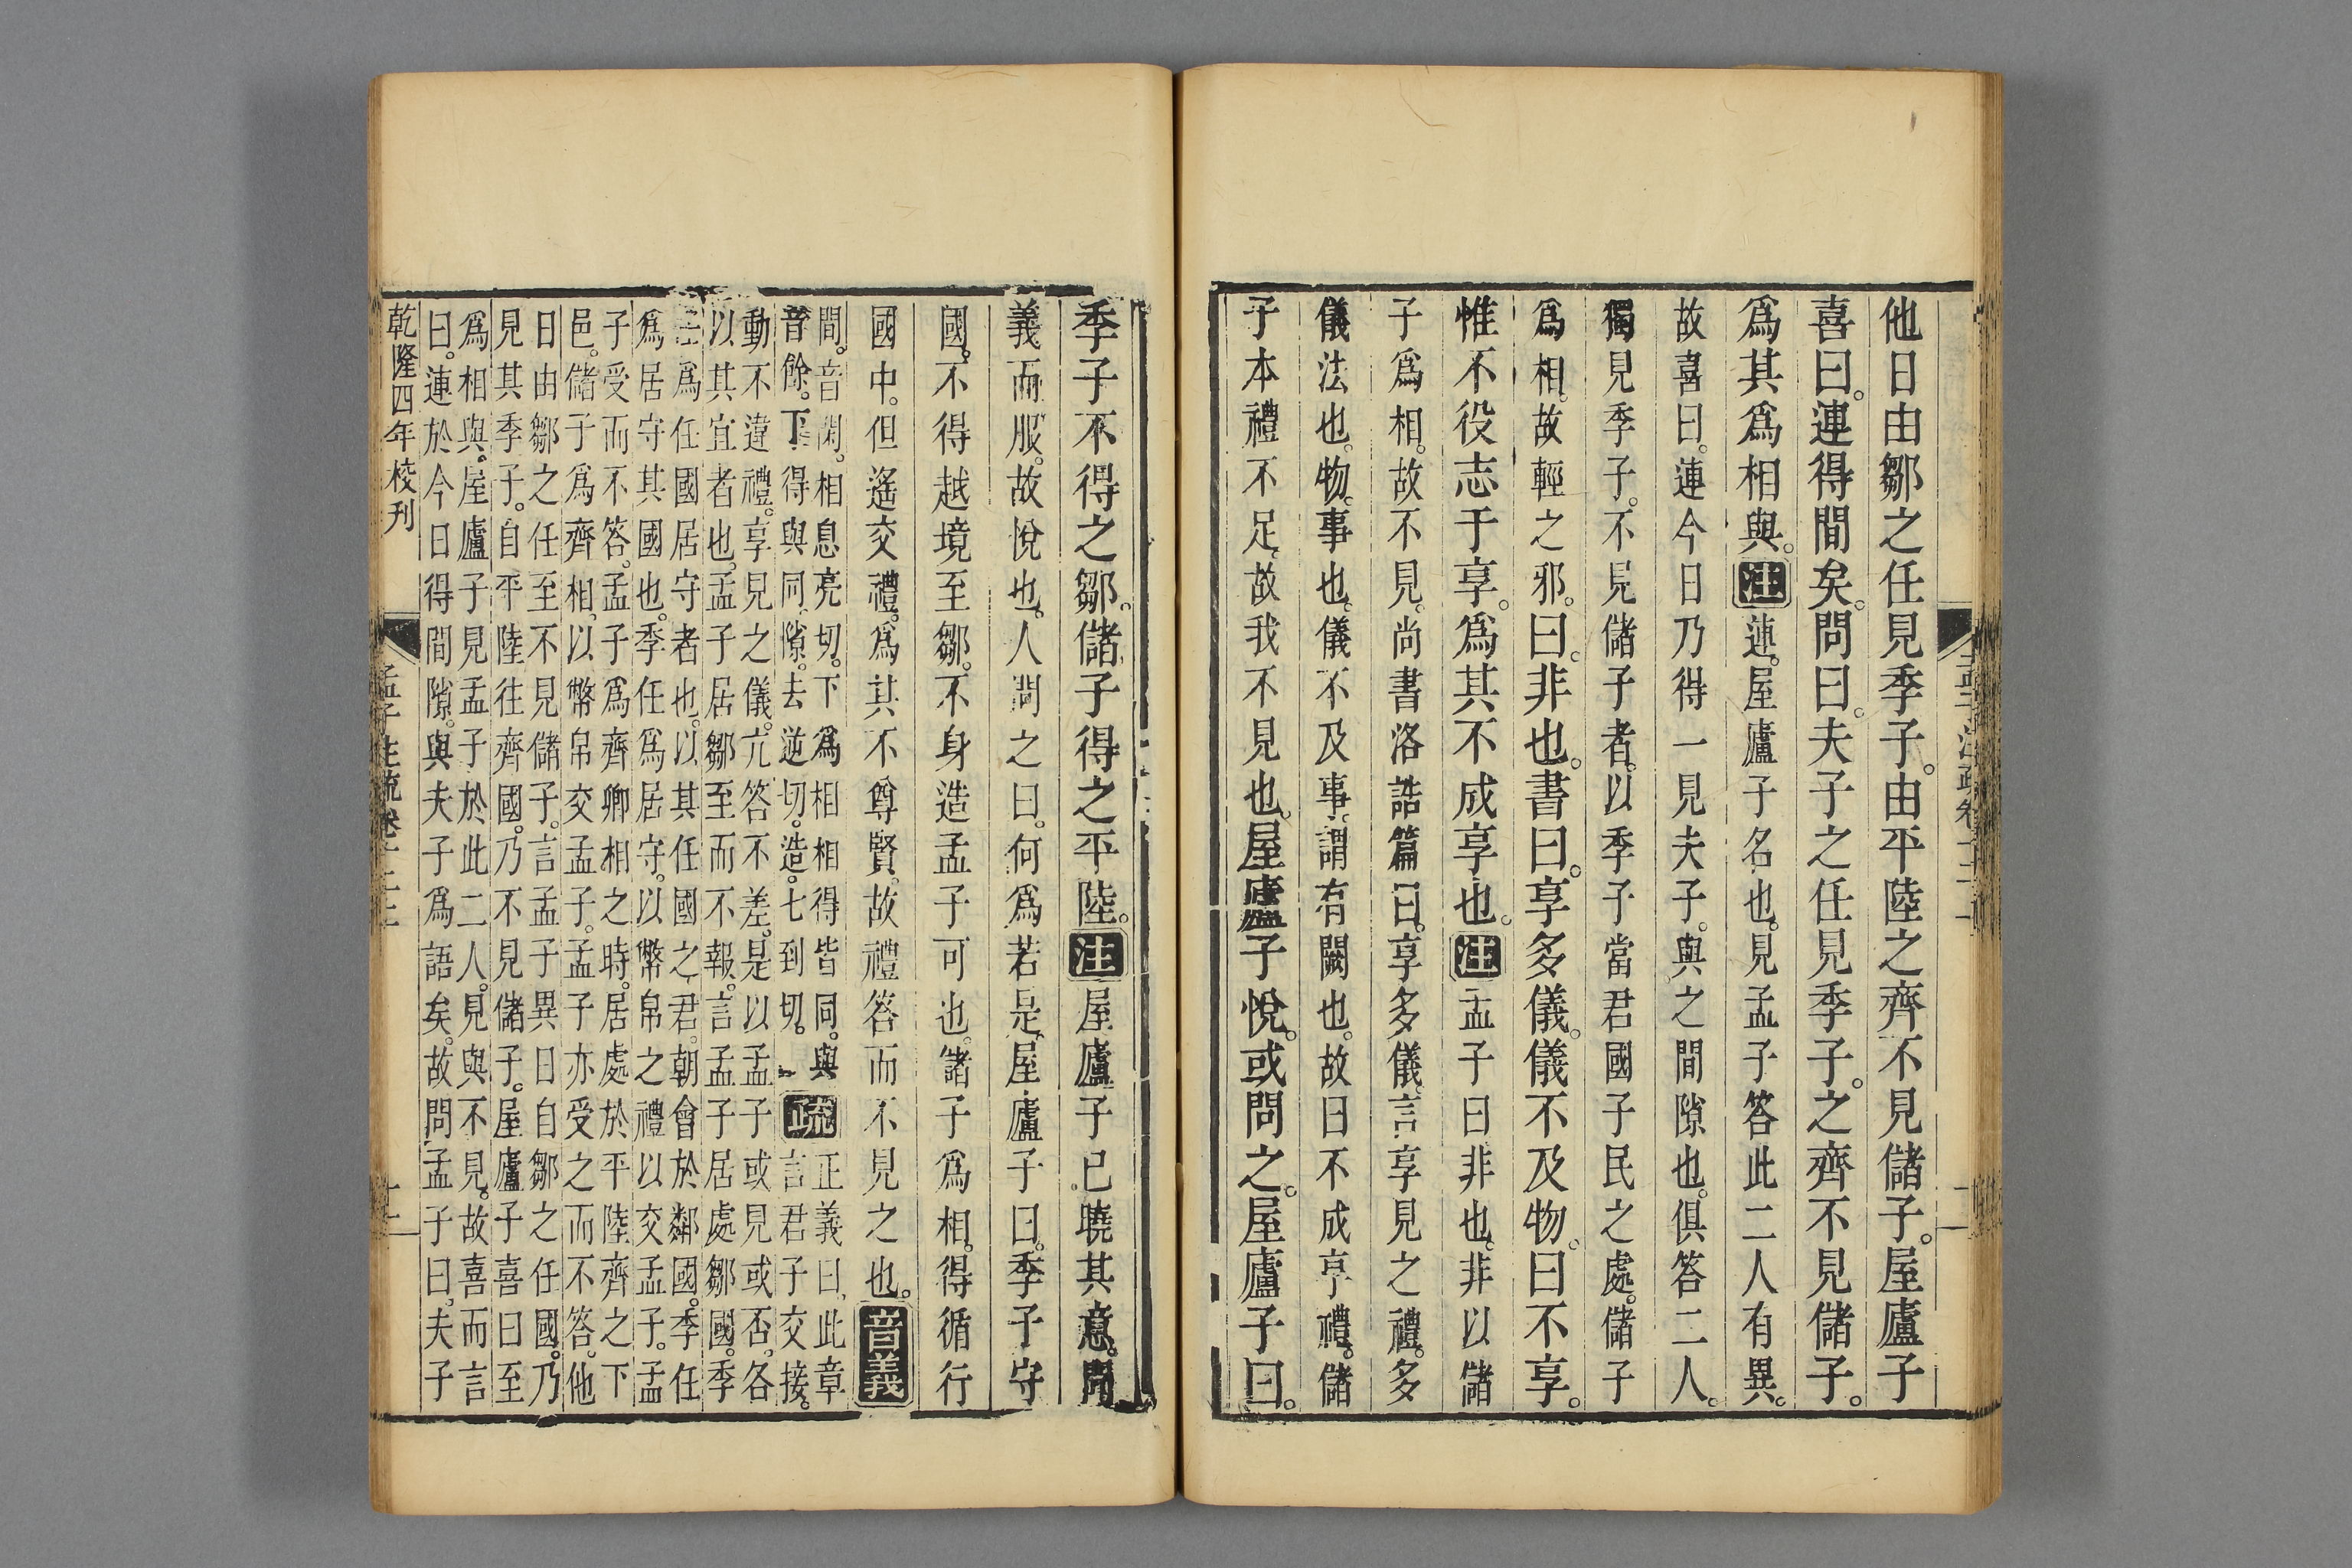 他日由鄒之任見季子。由平陸之齊不見儲子。屋廬子
喜曰。連得間矣。問曰。夫子之任見季子。之齊不見儲子。
爲其爲相與。注連。屋廬子名也。見孟子答此二人有異。
故喜曰。連今日乃得一見夫子。與之間隙也。俱答二人。
獨見季子。不見儲子者。以季子當君國子民之處。儲子
爲相。故輕之邪。曰。非也。書曰。享多儀。儀不及物。曰不享。
惟不役志于享。爲其不成享也。注孟子曰非也。非以儲
子爲相。故不見。尚書洛誥篇曰。享多儀。言享見之禮。多
儀法也。物。事也。儀不及事。謂有闕也。故曰不成享禮。儲
子本禮不足。故我不見也。屋廬子悅。或問之。屋廬子曰。
季子不得之鄒。儲子得之平陸。注屋廬子已曉其意。聞
義而服。故悅也。人問之曰。何爲若是。屋廬子曰。季子守
國。不得越境至鄒。不身造孟子可也。儲子爲相。得循行
國中。但遙交禮。爲其不尊賢。故禮答而不見之也。音義
間。音閑。相息亮切。下爲相相得皆同。與
音餘。下得與同。隙。去逆切。造。七到切。疏正義曰。此章
言君子交接。
動不違禮。享見之儀。亢答不差。是以孟子或見或否。各
以其宜者也。孟子居鄒至而不報。言孟子居處鄒國。季
任爲任國居守者也。以其任國之君。朝會於鄰國。季任
爲居守其國也。季任爲居守。以幣帛之禮以交孟子。孟
子受而不答。孟子爲齊卿相之時。居處於平陸齊之下
邑。儲子爲齊相。以幣帛交孟子。孟子亦受之而不答。他
日由鄒之任至不見儲子。言孟子異日自鄒之任國。乃
見其季子。自平陸往齊國。乃不見儲子。屋廬子喜曰至
爲相與。屋廬子見孟子於此二人。見與不見。故喜而言
曰。連於今日得間隙。與夫子爲語矣。故問孟子曰。夫子
乾隆四年校刊